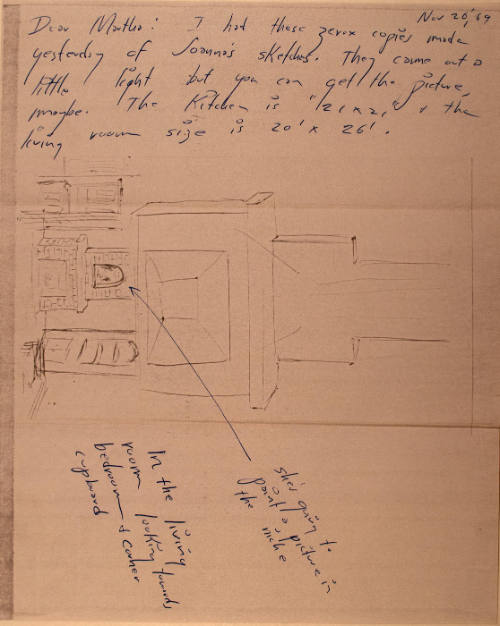 Nov 20, 69
Dear Martha: I had these zerox copies made
yesterday of Joanna's sketches. They came out a
little light but you can get the picture,
maybe. The Kitchen is 21 x 21' & the
living room size is 20' x 26'.
she's going to
paint a picture in
the niche
In the living
room looking towards
bedroom & corner
cupboard